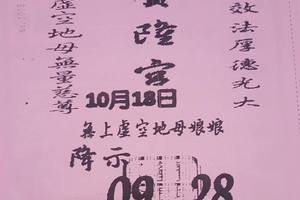 效法厚德光大
隆宮
虛空地母無量慈尊
10月18日
無上虛空地母娘娘
降示
09 28